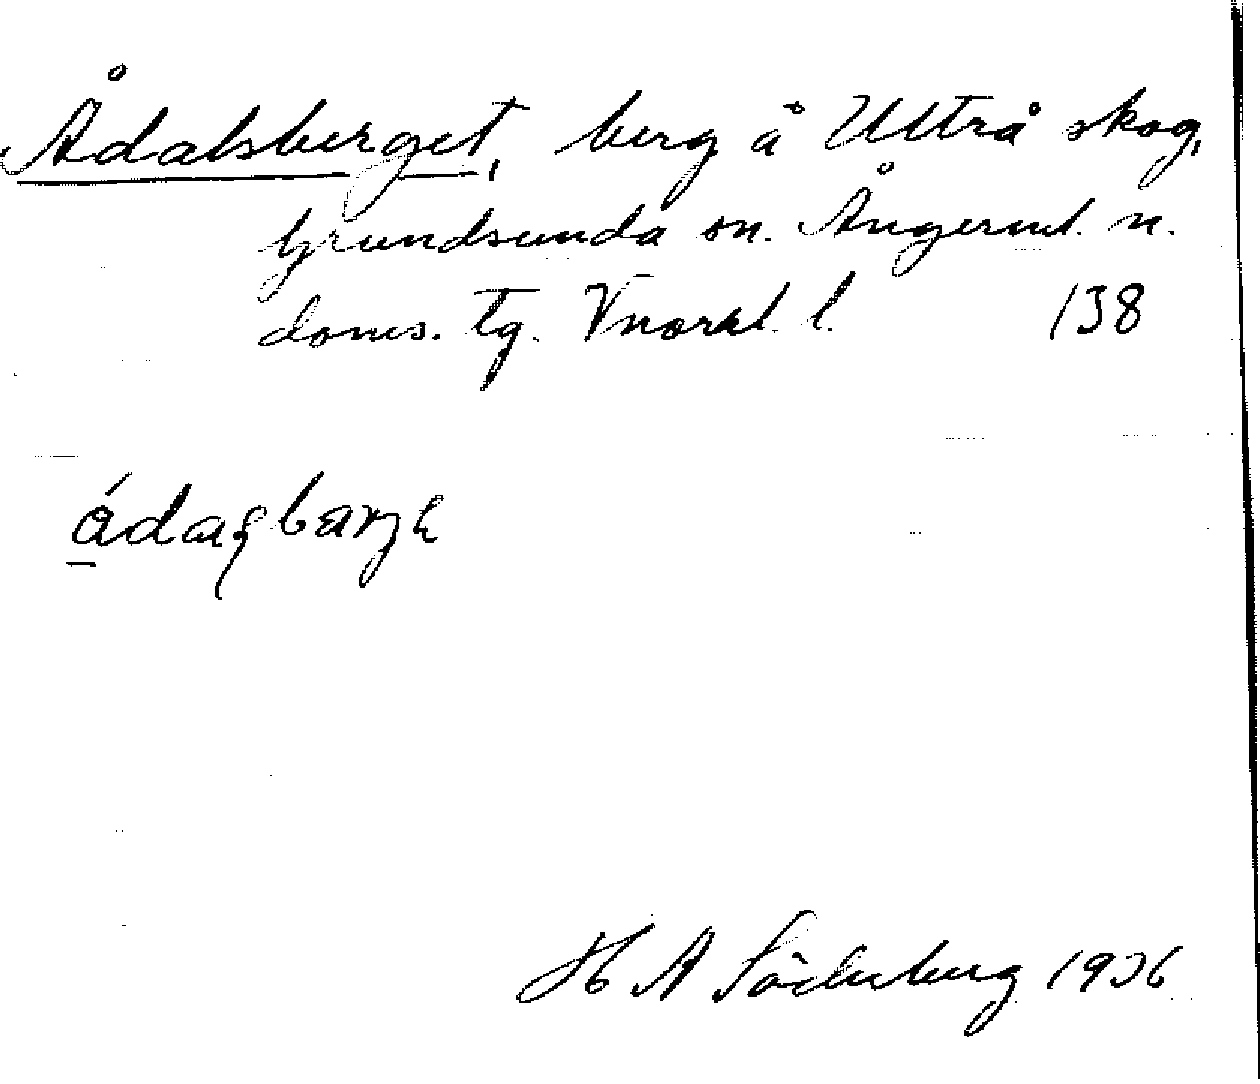 Ådalsberget, berg å Utträ skog,
Grundsunda sn. Ångerml. n.
doms. tg. Vnorrl. l. 138
H A Söderberg 1936